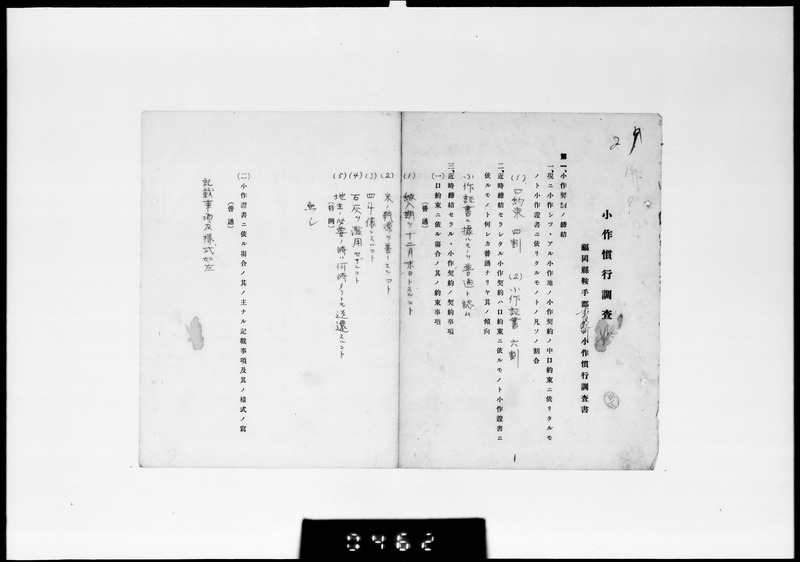 小作慣行調査
福岡縣鞍手郡 小作慣行調査書
第一、小作契約ノ締結
一、現ニ小作シツヽアル小作地ノ小作契約ノ中口約束ニ依リタルモ
ノト小作證書ニ依リタルモノトノ凡ソノ割合
(1)、口約束 四割 (2) 小作証書 六割
二、近時締結セラレタル小作契約ハ口約束ニ依ルモノト小作證書ニ
依ルモノト何レカ普通ナリヤ其ノ傾向
小作証書ニ據ルモノヲ普通ト認ム
三、近時締結セラルヽ小作契約ノ契約事項
(一)口約束ニ依ル場合ノ其ノ約束事項
(普通)
(1) 納入期ヲ十二月末日トスルコト
(2) 米ノ乾燥ヲ善クスルコト
(3) 四斗俵トスルコト
(4) 石灰ヲ濫用セザルコト
(5) 地主ニ必要ノ時ハ何時ノトモ返還スルコト
(特例)
無シ
(二)小作證書ニ依ル場合ノ其ノ主ナル記載事項及其ノ樣式ノ寫
(普通)
記載事項及樣式如左
0462